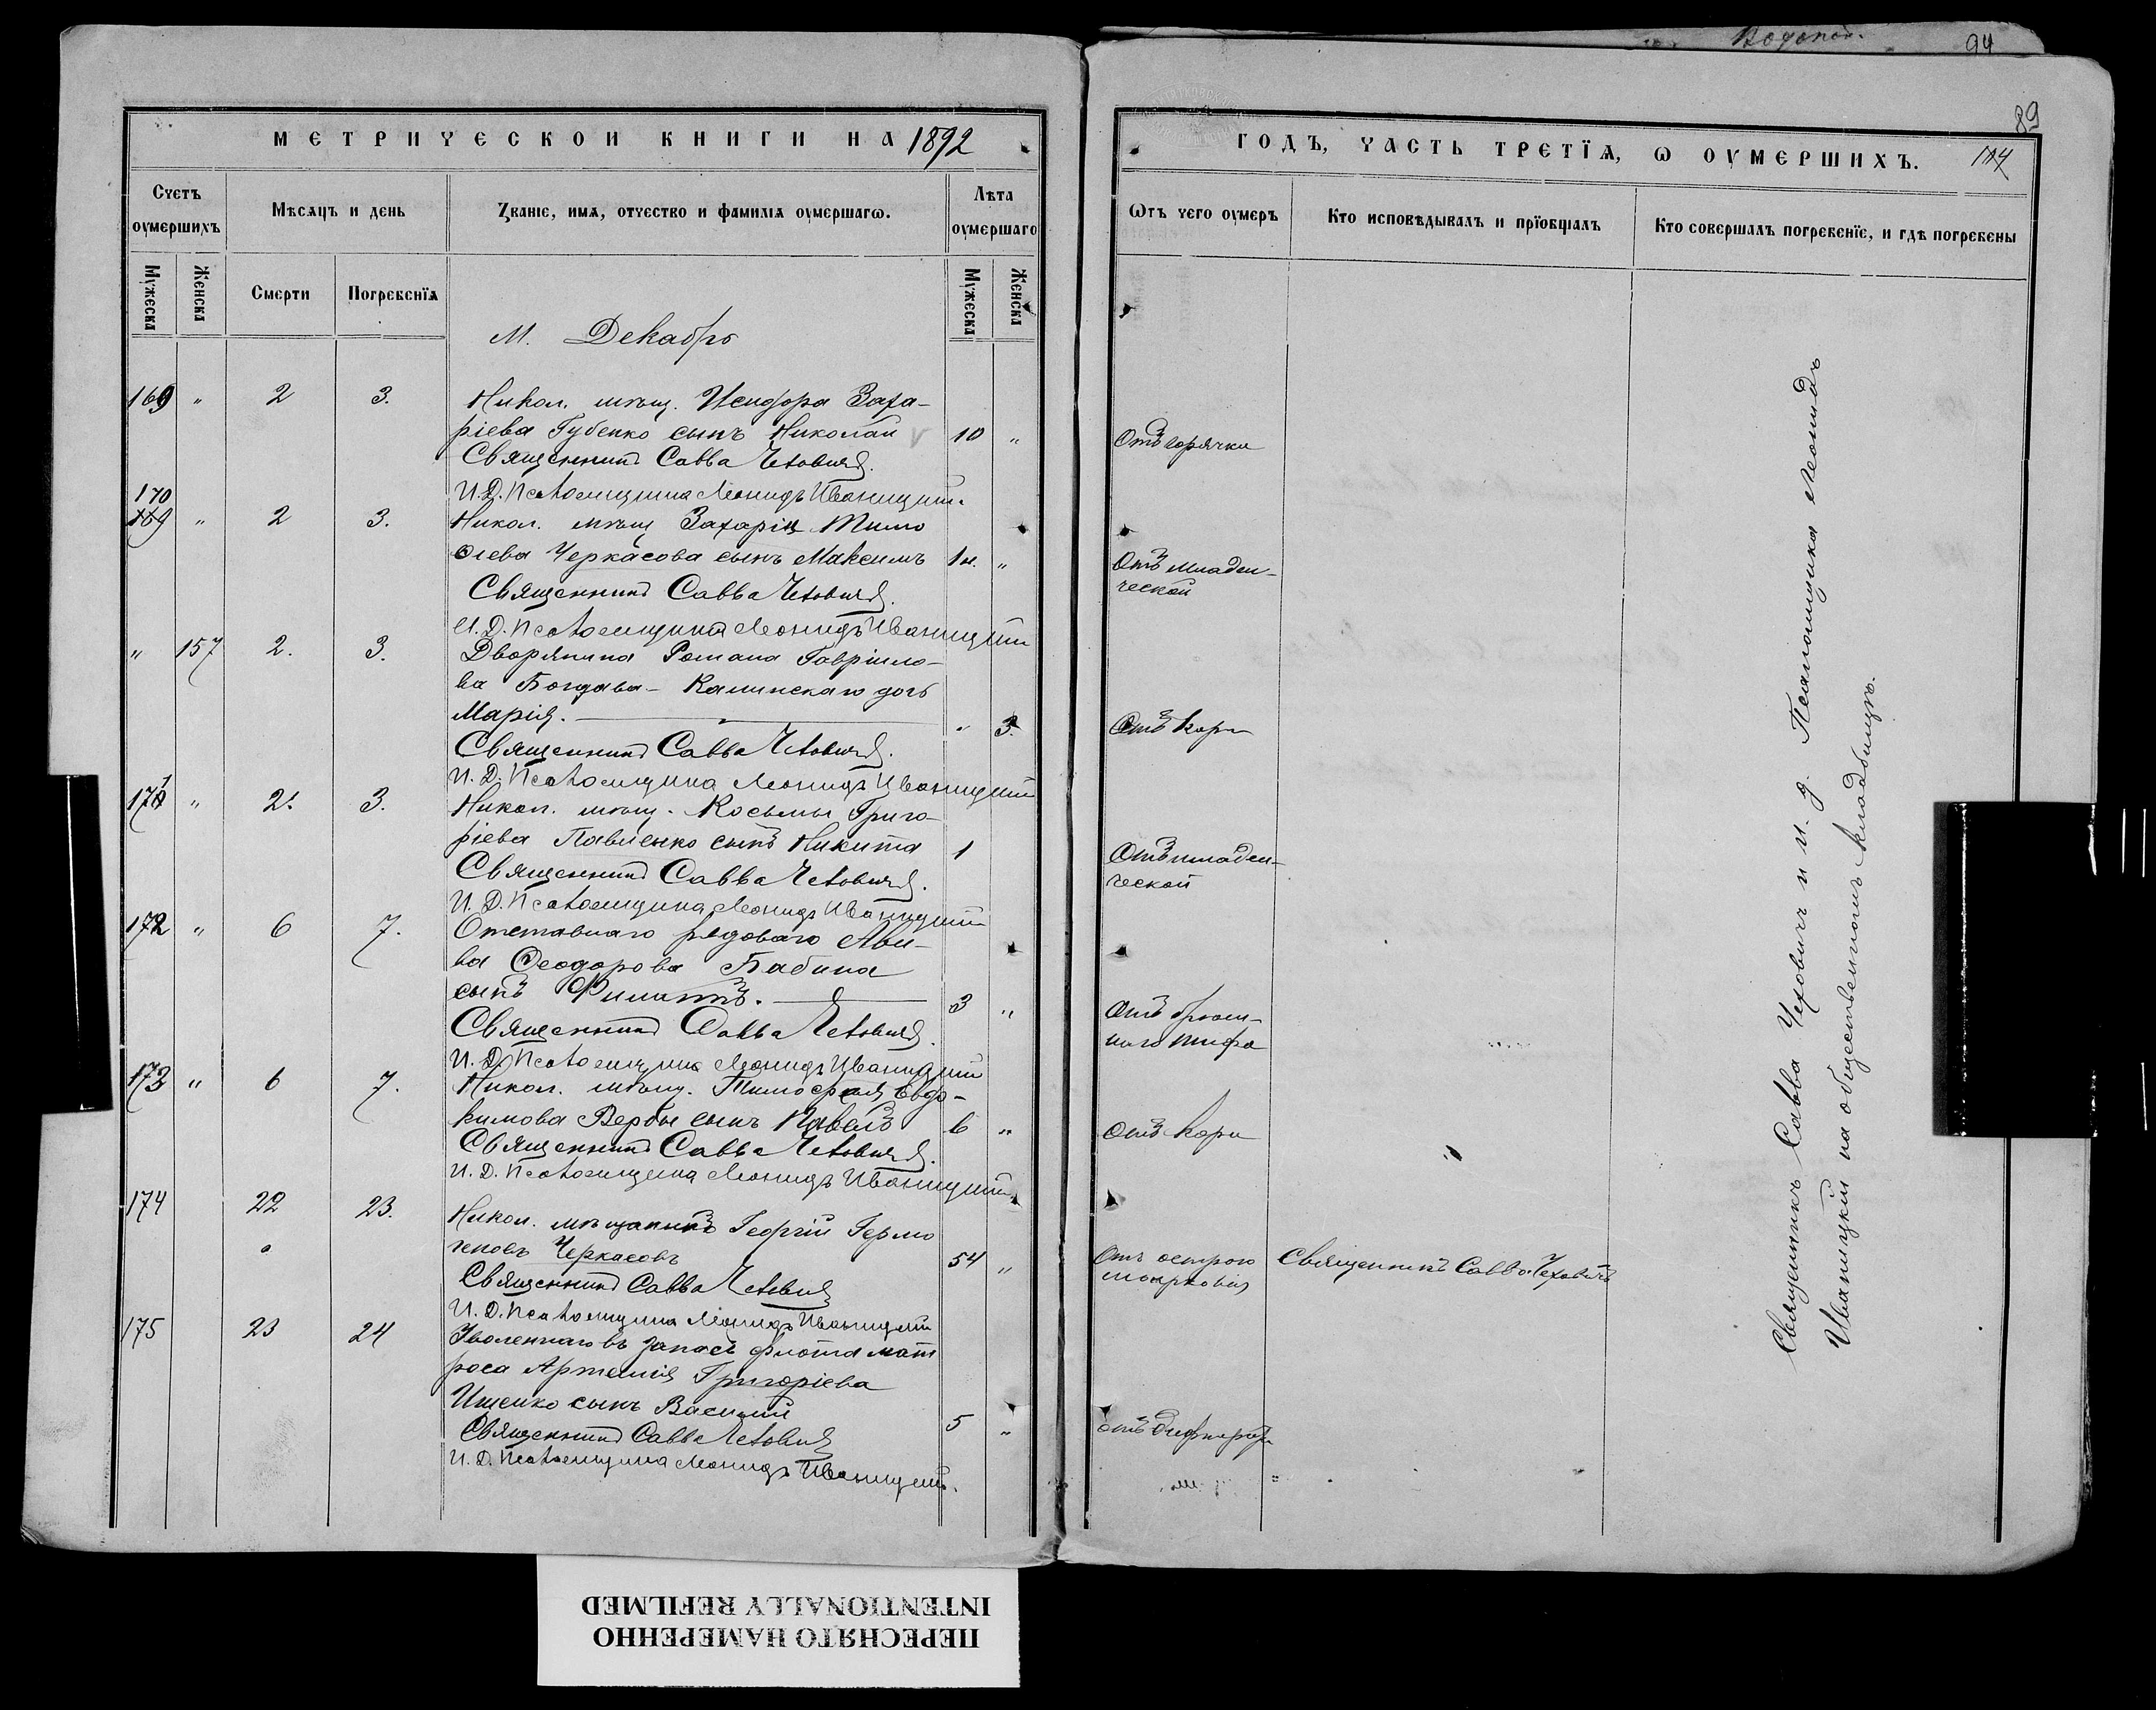 Водопой.
94
89
МЕТРИЧЕСКОЙ КНИГИ НА 1892
ГОДЪ, ЧАСТЬ ТРЕТІЯ, Ѡ ОУМЕРШИХЪ.
Счетъ оумершихъ
Мѣсяцъ и день
Званіе, имя, отчество и фамилія оумершагѡ.
Лѣта оумершаго
Мужеска
Женска
Смерти
Погребенїя
Мужеска
Женска
Ѿтъ чего оумеръ
Кто исповѣдывалъ и прїобщалъ
Кто совершалъ погребенїе, и гдѣ погребены
М. Декабрь
169 " 2 3.
Никол. мѣщ. Исидора Заха-
ріева Губенко сынъ Николай 10 "
Отъ горячки
Священникъ Савва Чеховичъ.
И. Д. Псаломщика Леонидъ Иваницкій.
170
169 " 2 3.
Никол. мѣщ Захарія Тимо
ѳеева Черкасова сынъ Максимъ 1 н. "
Отъ младен-
ческой
Священникъ Савва Чеховичъ.
И. Д. Псаломщика Леонидъ Иваницкій
" 157 2. 3.
Дворянина Романа Гавріило-
ва Богдава- Калинскаго дочь
Марія. " 3.
Отъ кори
Священникъ Савва Чеховичъ.
И. Д. Псаломщика Леонидъ Иваницкій
171 " 2. 3.
Никол. мѣщ. Косьмы Григо-
ріева Павленко сынъ Никита 1
Отъ младен-
ческой
Священникъ Савва Чеховичъ.
И. Д. Псаломщика Леонидъ Иваницкій
172 " 6 7.
Отставнаго рядоваго
Ѳеодорова Бабина
сынъ Филиппъ. 3 "
Отъ брюш-
наго тифа
Священникъ Савва Чеховичъ.
И. Д. Псаломщика Леонидъ Иваницкій
173 " 6 7.
Никол. мѣщ. Тимоѳея Евдо-
кимова Вербы сынъ Павелъ 6 "
Отъ кори
Священникъ Савва Чеховичъ.
И. Д. Псаломщика Леонидъ Иваницкій.
174 22 23.
Никол. мѣщанинъ Георгій Гермо
геновъ Черкасовъ 54 "
Отъ остраго
Священникъ Савва Чеховичъ
Священникъ Савва Чеховичъ
И. Д. Псаломщика Леонидъ Иваницкій
175 23 24
Уволеннаго въ запасъ флота мат
роса Артемія Григоріева
Ищенко сынъ Василій 5 "
отъ дифтерита
Священникъ Савва Чеховичъ
И. Д. Псаломщика Леонидъ Иваницкій.
Священникъ Савва Чеховичъ и и. д. Псаломщика Леонидъ
Иваницкій на общественномъ кладбищѣ.
ПЕРЕСНЯТО НАМЕРЕННО
INTENTIONALLY REFILMED